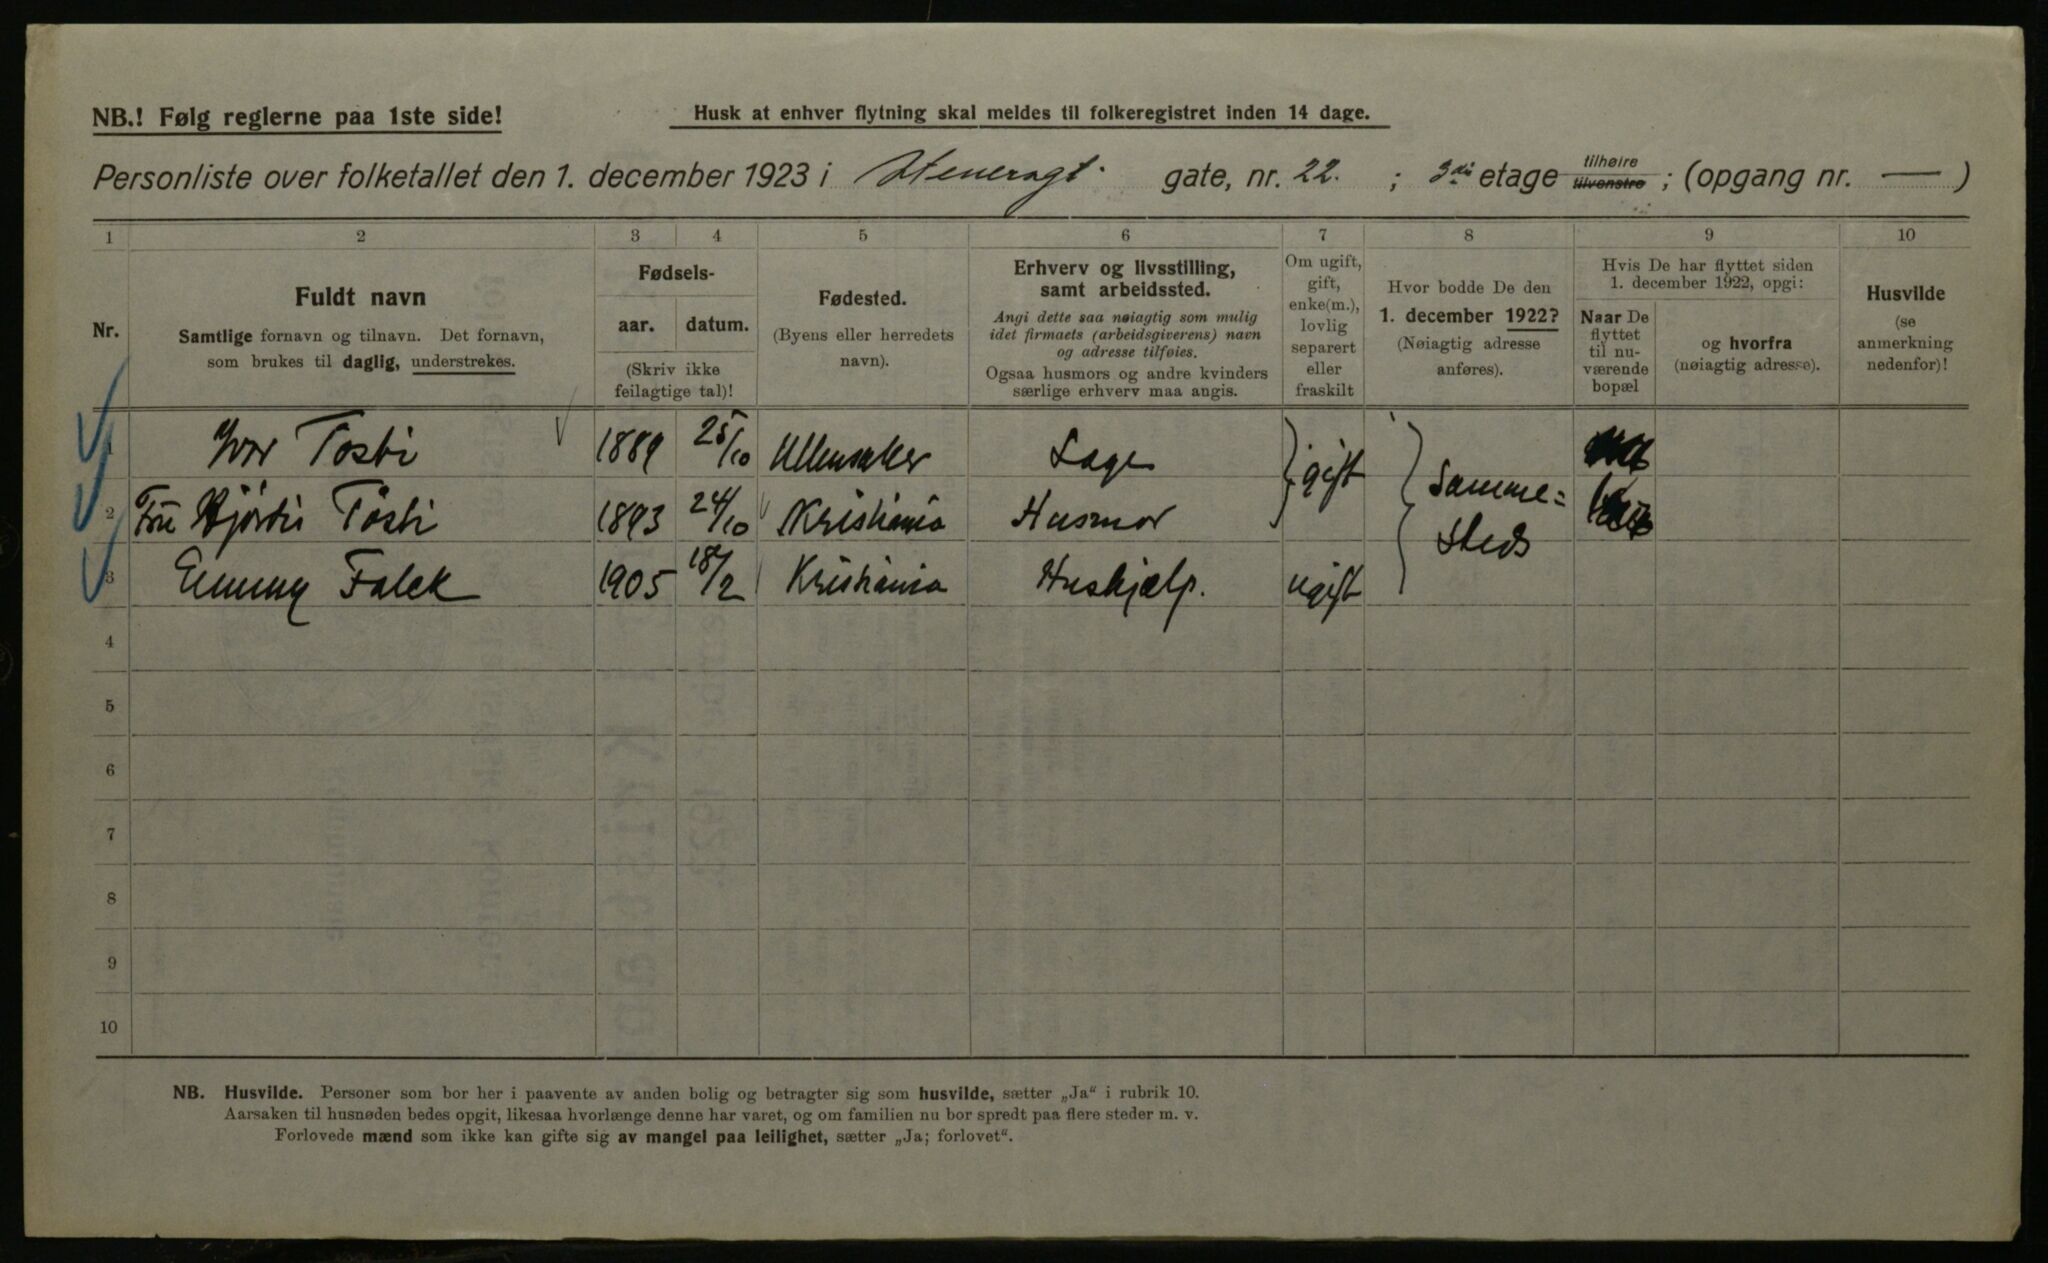 NB.! Følg reglerne paa 1ste side!
Husk at enhver flytning skal meldes til folkeregistret inden 14 dage.
Personliste over folketallet den 1. december 1923 i gate, nr. 22. ; 3die etage tilhøire tilvenstre ; (opgang nr. — )
1 2 3 4 5 6 7 8 9 10
Nr.
Fuldt navn
Samtlige fornavn og tilnavn. Det fornavn,
som brukes til daglig, understrekes.
Fødsels-
aar. datum.
(Skriv ikke
feilagtige tal)!
Fødested.
(Byens eller herredets
navn).
Erhverv og livsstilling,
samt arbeidssted.
Angi dette saa nøiagtig som mulig
idet firmaets (arbeidsgiverens) navn
og adresse tilføies.
Ogsaa husmors og andre kvinders
særlige erhverv maa angis.
Om ugift,
gift,
enke(m.),
lovlig
separert
eller
fraskilt
Hvor bodde De den
1. december 1922?
(Nøiagtig adresse
anføres).
Hvis De har flyttet siden
1. december 1922, opgi:
Naar De
flyttet
til nu-
værende
bopæl
og hvorfra
(nøiagtig adresse).
Husvilde
(se
anmerkning
nedenfor)!
1 Ivar Tosti 1889 25/10 Ullensaker Læge gift Samme-
2 Fru Hjördis Tosti 1893 24/10 Kristiania Husmor steds
3 Emmy Falck 1905 18/2 Kristiania Hushjælp. ugift
4
5
6
7
8
9
10
NB. Husvilde. Personer som bor her i paavente av anden bolig og betragter sig som husvilde, sætter „Ja“ i rubrik 10.
Aarsaken til husnøden bedes opgit, likesaa hvorlænge denne har varet, og om familien nu bor spredt paa flere steder m. v.
Forlovede mænd som ikke kan gifte sig av mangel paa leilighet, sætter „Ja; forlovet“.